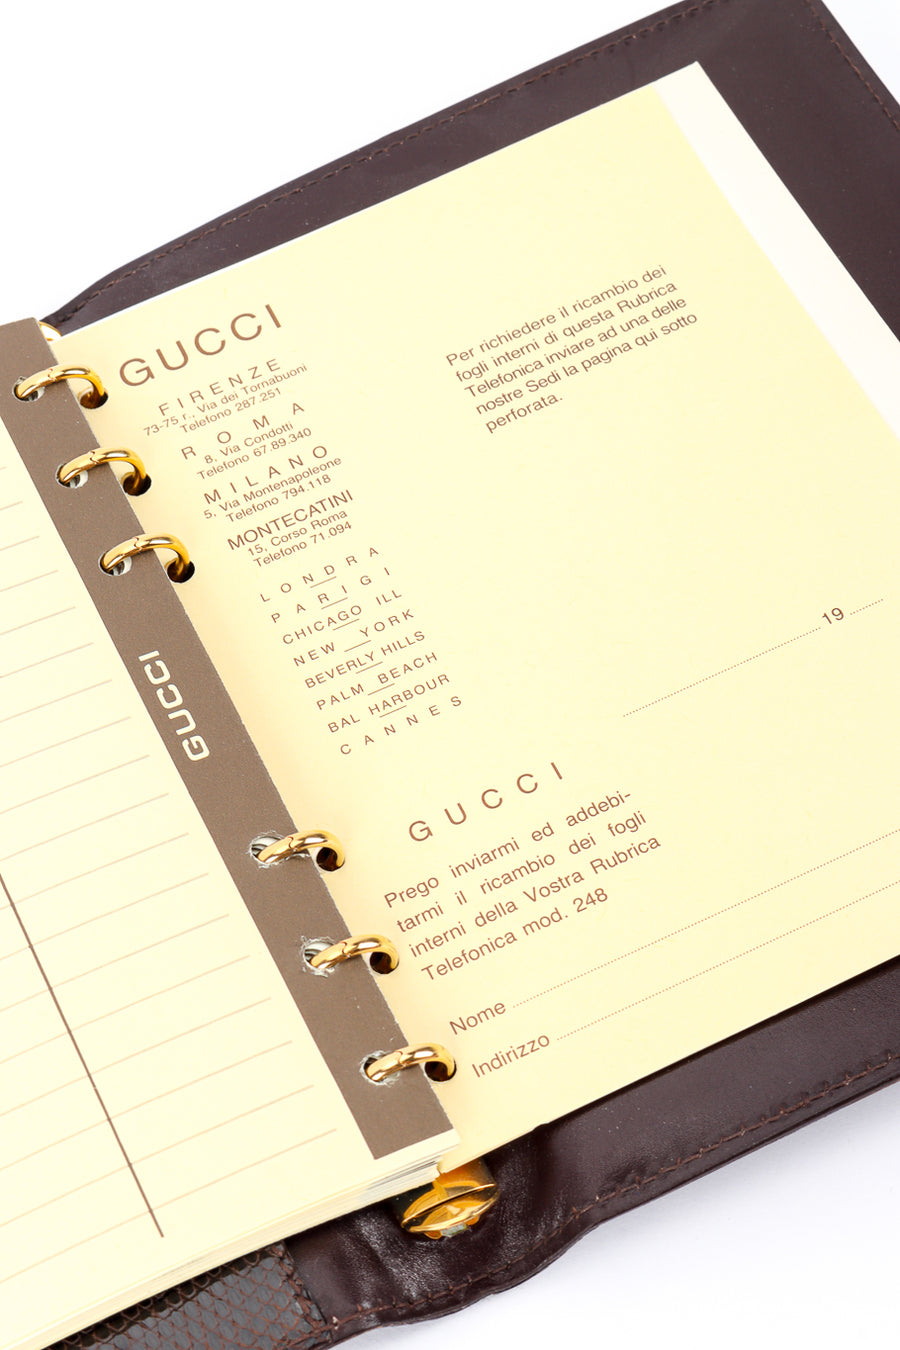 GUCCI
FIRENZE
73-75 r., Via dei Tornabuoni
Telefono 287.251
ROMA
8, Via Condotti
Telefono 67.89.340
MILANO
5, Via Montenapoleone
Telefono 794.118
MONTECATINI
15, Corso Roma
Telefono 71.094
LONDRA
PARIGI
CHICAGO ILL
NEW YORK
BEVERLY HILLS
PALM BEACH
BAL HARBOUR
CANNES
Per richiedere il ricambio dei
fogli interni di questa Rubrica
Telefonica inviare ad una delle
nostre Sedi la pagina qui sotto
perforata.
19
GUCCI
Prego inviarmi ed addebi-
tarmi il ricambio dei fogli
interni della Vostra Rubrica
Telefonica mod. 248
Nome
Indirizzo
GUCCI